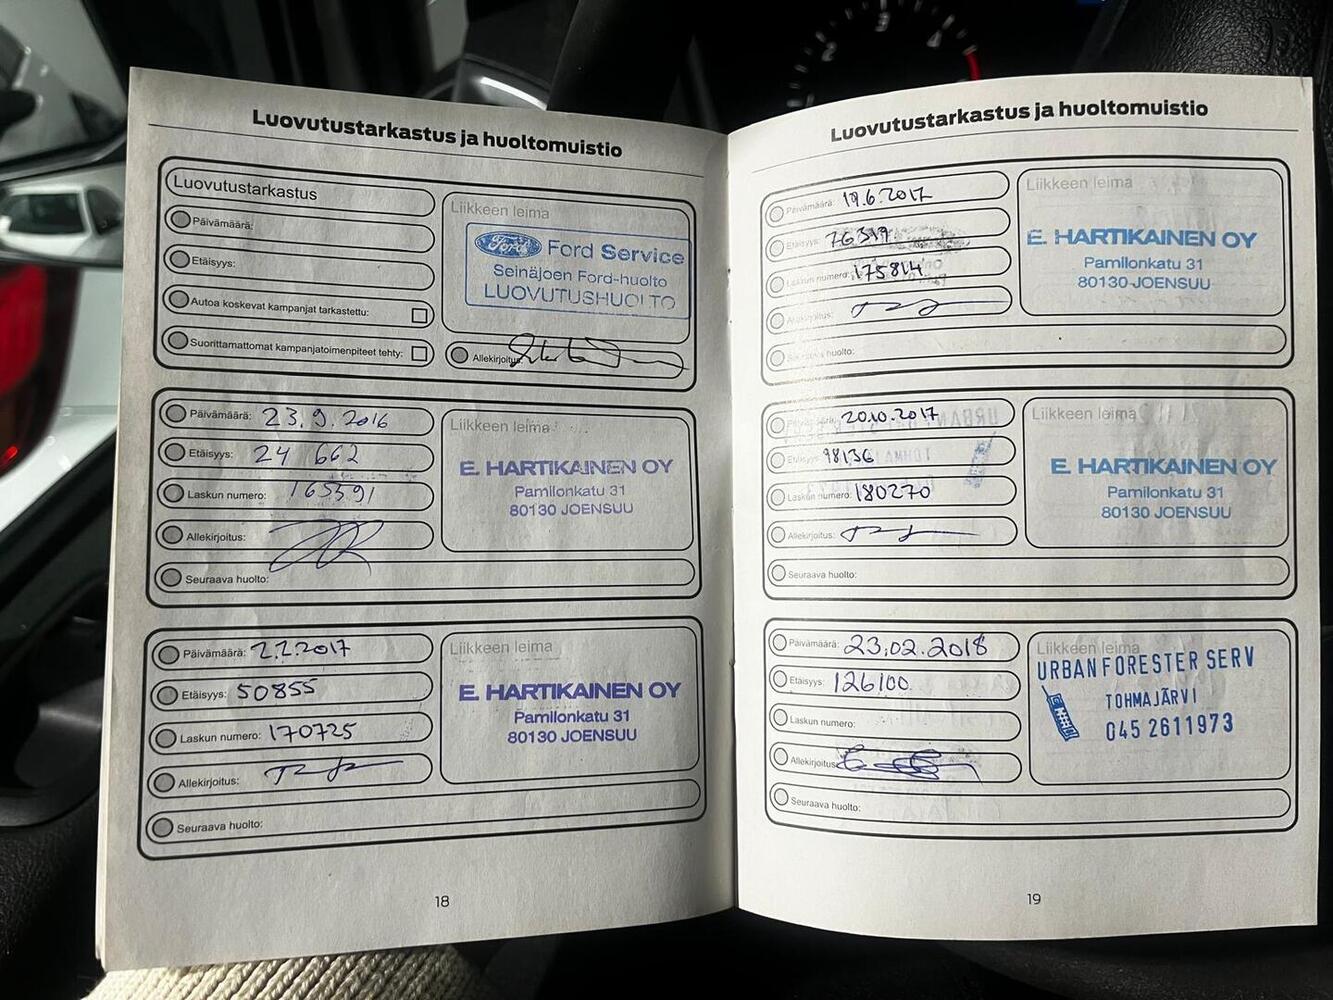 Luovutustarkastus ja huoltomuistio
Luovutustarkastus
Päivämäärä:
Etäisyys:
Autoa koskevat kampanjat tarkastettu:
Suorittamattomat kampanjatoimenpiteet tehty:
Liikkeen leima
Ford Ford Service
Seinäjoen Ford-huolto
LUOVUTUSHUOLTO
Allekirjoitus:
Päivämäärä: 23.9.2016
Etäisyys: 24 662
Laskun numero: 165591
Allekirjoitus:
Seuraava huolto:
Liikkeen leima
E. HARTIKAINEN OY
Pamilonkatu 31
80130 JOENSUU
Päivämäärä: 2.2.2017
Etäisyys: 50855
Laskun numero: 170725
Allekirjoitus:
Seuraava huolto:
Liikkeen leima
E. HARTIKAINEN OY
Pamilonkatu 31
80130 JOENSUU
18
Luovutustarkastus ja huoltomuistio
Päivämäärä: 19.6.2017
Etäisyys: 76319
Laskun numero: 175814
Allekirjoitus:
Seuraava huolto:
Liikkeen leima
E. HARTIKAINEN OY
Pamilonkatu 31
80130 JOENSUU
Päivämäärä: 20.10.2017
Etäisyys: 98136
Laskun numero: 180270
Allekirjoitus:
Seuraava huolto:
Liikkeen leima
E. HARTIKAINEN OY
Pamilonkatu 31
80130 JOENSUU
Päivämäärä: 23.02.2018
Etäisyys: 126100
Laskun numero:
Allekirjoitus:
Seuraava huolto:
Liikkeen leima
URBAN FORESTER SERV
TOHMAJÄRVI
045 2611973
19